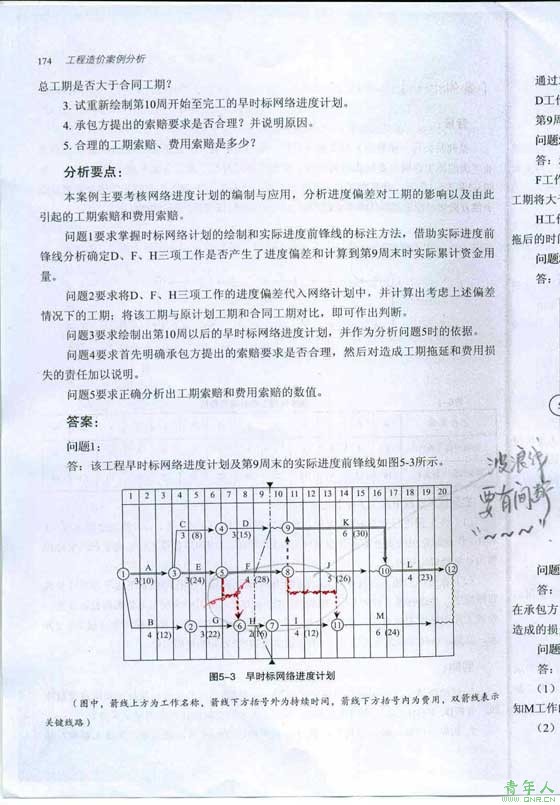 174 工程造价案例分析
总工期是否大于合同工期？
3. 试重新绘制第10周开始至完工的早时标网络进度计划。
4. 承包方提出的索赔要求是否合理？并说明原因。
5. 合理的工期索赔、费用索赔是多少？
分析要点：
本案例主要考核网络进度计划的编制与应用，分析进度偏差对工期的影响以及由此
引起的工期索赔和费用索赔。
问题1要求掌握时标网络计划的绘制和实际进度前锋线的标注方法，借助实际进度前
锋线分析确定D、F、H三项工作是否产生了进度偏差和计算到第9周末时实际累计资金用
量。
问题2要求将D、F、H三项工作的进度偏差代入网络计划中，并计算出考虑上述偏差
情况下的工期；将该工期与原计划工期和合同工期对比，即可作出判断。
问题3要求绘制出第10周以后的早时标网络进度计划，并作为分析问题5时的依据。
问题4要求首先明确承包方提出的索赔要求是否合理，然后对造成工期拖延和费用损
失的责任加以说明。
问题5要求正确分析出工期索赔和费用索赔的数值。
答案：
问题1：
答：该工程早时标网络进度计划及第9周末的实际进度前锋线如图5-3所示。
波浪线
要有间断
"~~~"
1 2 3 4 5 6 7 8 9 10 11 12 13 14 15 16 17 18 19 20
C D K
3 (8) 4 3(15) 9 6 (30)
A E F J L
1 3(10) 3 3(24) 5 4 (28) 8 5 (26) 10 4 (23) 12
B G H I M
4 (12) 2 3(22) 6 2(16) 7 4 (12) 11 6 (24)
图5-3 早时标网络进度计划
（图中，箭线上方为工作名称，箭线下方括号外为持续时间，箭线下方括号内为费用，双箭线表示
关键线路）
通过
D工作
第9周
问题
答：
F工作
工期将大于
H工作
拖后的时间
问题
答：
问题
答：
在承包方
造成的损
问题
答：
（1）
知M工作
（2）
青年人
WWW.QNR.CN